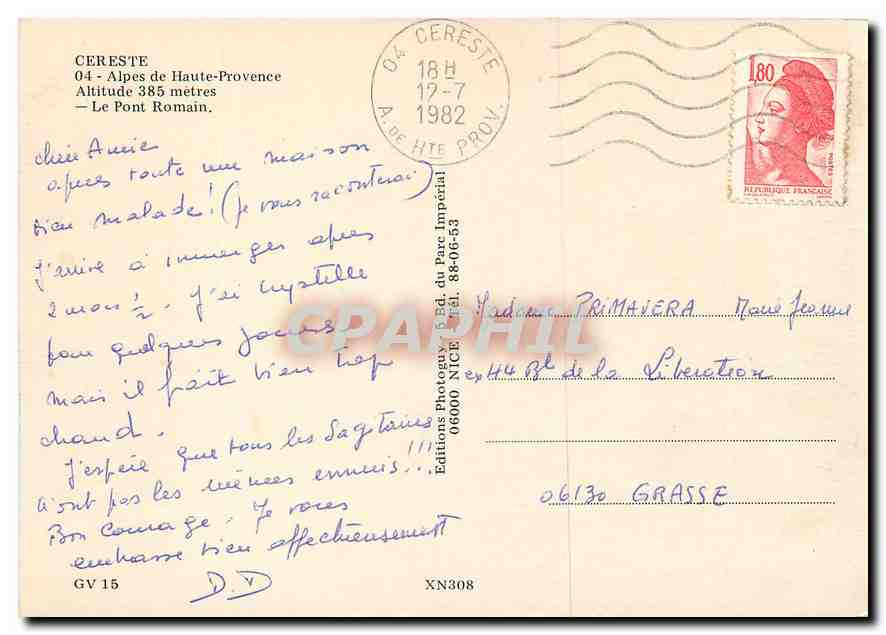 CERESTE
04 - Alpes de Haute-Provence
Altitude 385 mètres
— Le Pont Romain.
04 CERESTE
18H
12-7
1982
A. DE HTE PROV.
1,80
POSTES
REPUBLIQUE FRANÇAISE
chère Amie
après toute une maison
bien malade! (je vous raconterai)
J'arrive à émerger après
2 mois 1/2. J'ai Crystelle
pour quelques jours
mais il fait bien trop
chaud.
J'espère que tous les Sagitaires
n'ont pas les mêmes ennuis!!!
Bon Courage. Je vous
embrasse bien affectueusement
D.D
Editions Photoguy - 5 Bd. du Parc Impérial
06000 NICE - Tél. 88-06-53
CPAPHIL
Madame PRIMAVERA Marie Jeanne
44 Bd de la Libération
06130 GRASSE
GV 15
XN308